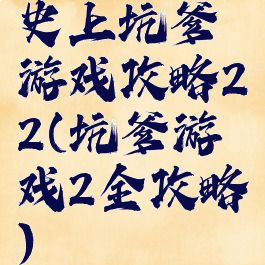 史上坑爹
游戏攻略2
2(坑爹游
戏2全攻略
)